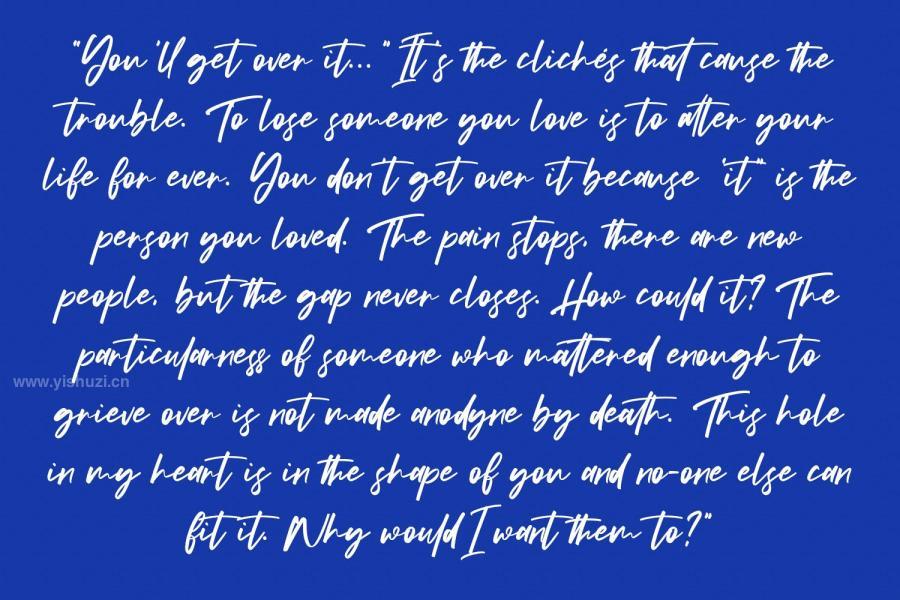 "You'll get over it..." It's the clichés that cause the
trouble. To lose someone you love is to alter your
life for ever. You don't get over it because 'it" is the
person you loved. The pain stops, there are new
people, but the gap never closes. How could it? The
particularness of someone who mattered enough to
www.yishuzi.cn
grieve over is not made anodyne by death. This hole
in my heart is in the shape of you and no-one else can
fit it. Why would I want them to?"